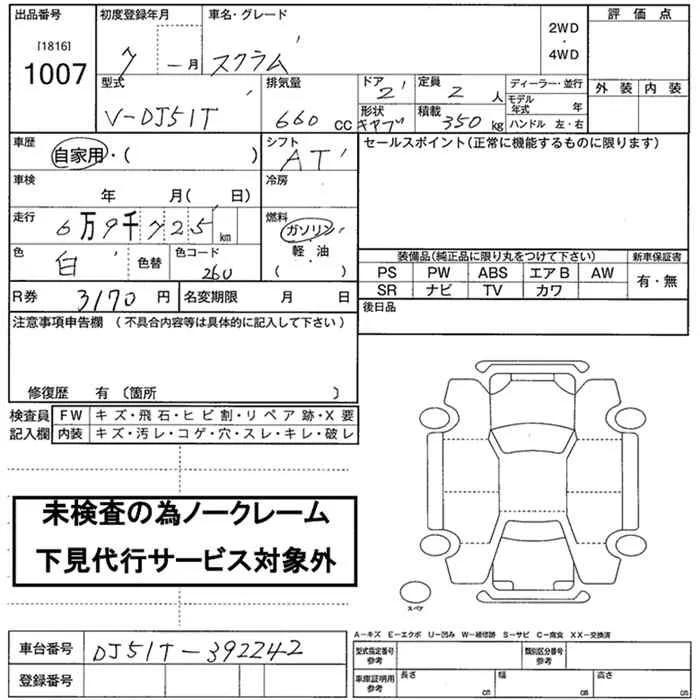 出品番号 初度登録年月 車名・グレード 評価点
[1816] 2WD
1007 7 ー月 スクラム ・
4WD
型式 排気量 ドア 2 定員 2 人 ディーラー・並行 外装 内装
V-DJ51T 660 CC 形状 キャブ 積載 350 kg モデル年式 年
ハンドル 左・右
車歴 自家用・( ) シフト AT セールスポイント(正常に機能するものに限ります)
車検 年 月( 日) 冷房
走行 6万9千725km 燃料 ガソリン
軽・油
( )
色 白 色替 色コード 260
装備品(純正品に限り丸をつけて下さい) 新車保証書
PS PW ABS エアB AW 有・無
SR ナビ TV カワ
R券 3170 円 名変期限 月 日 後日品
注意事項申告欄 (不具合内容等は具体的に記入して下さい)
修復歴 有〔箇所 〕
検査員 FW キズ・飛石・ヒビ割・リペア跡・X要
記入欄 内装 キズ・汚レ・コゲ・穴・スレ・キレ・破レ
未検査の為ノークレーム
下見代行サービス対象外
スペア
A−キズ E−エクボ U−凹み W−補修跡 S−サビ C−腐食 XX−交換済
車台番号 DJ51T-392242 型式指定番号 参考 類別区分番号 参考
登録番号 車庫証明用 参考 長さ cm 幅 cm 高さ cm